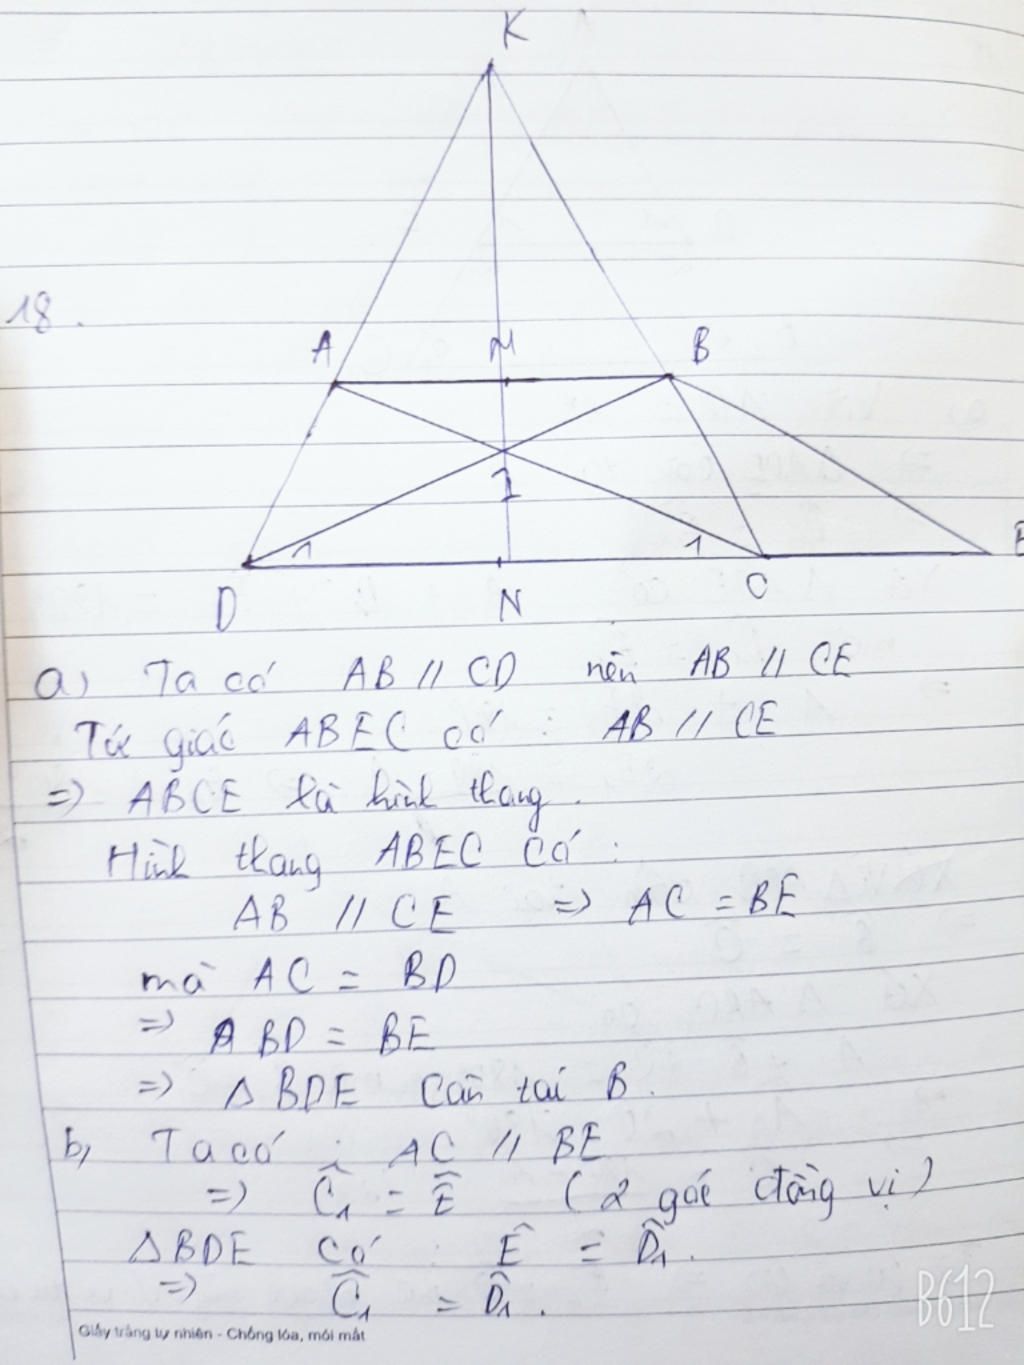 K
18.
A M B
I
1 1
D N C E
a) Ta có AB // CD nên AB // CE
Tứ giác ABEC có : AB // CE
=> ABCE là hình thang.
Hình thang ABEC có :
AB // CE => AC = BE
mà AC = BD
=> BD = BE
=> Δ BDE cân tại B.
b, Ta có : AC // BE
=> Ĉ₁ = Ê (2 góc đồng vị)
ΔBDE có : Ê = D̂₁.
=> Ĉ₁ = D̂₁.
Giấy trắng tự nhiên - Chống lóa, mỏi mắt
B612